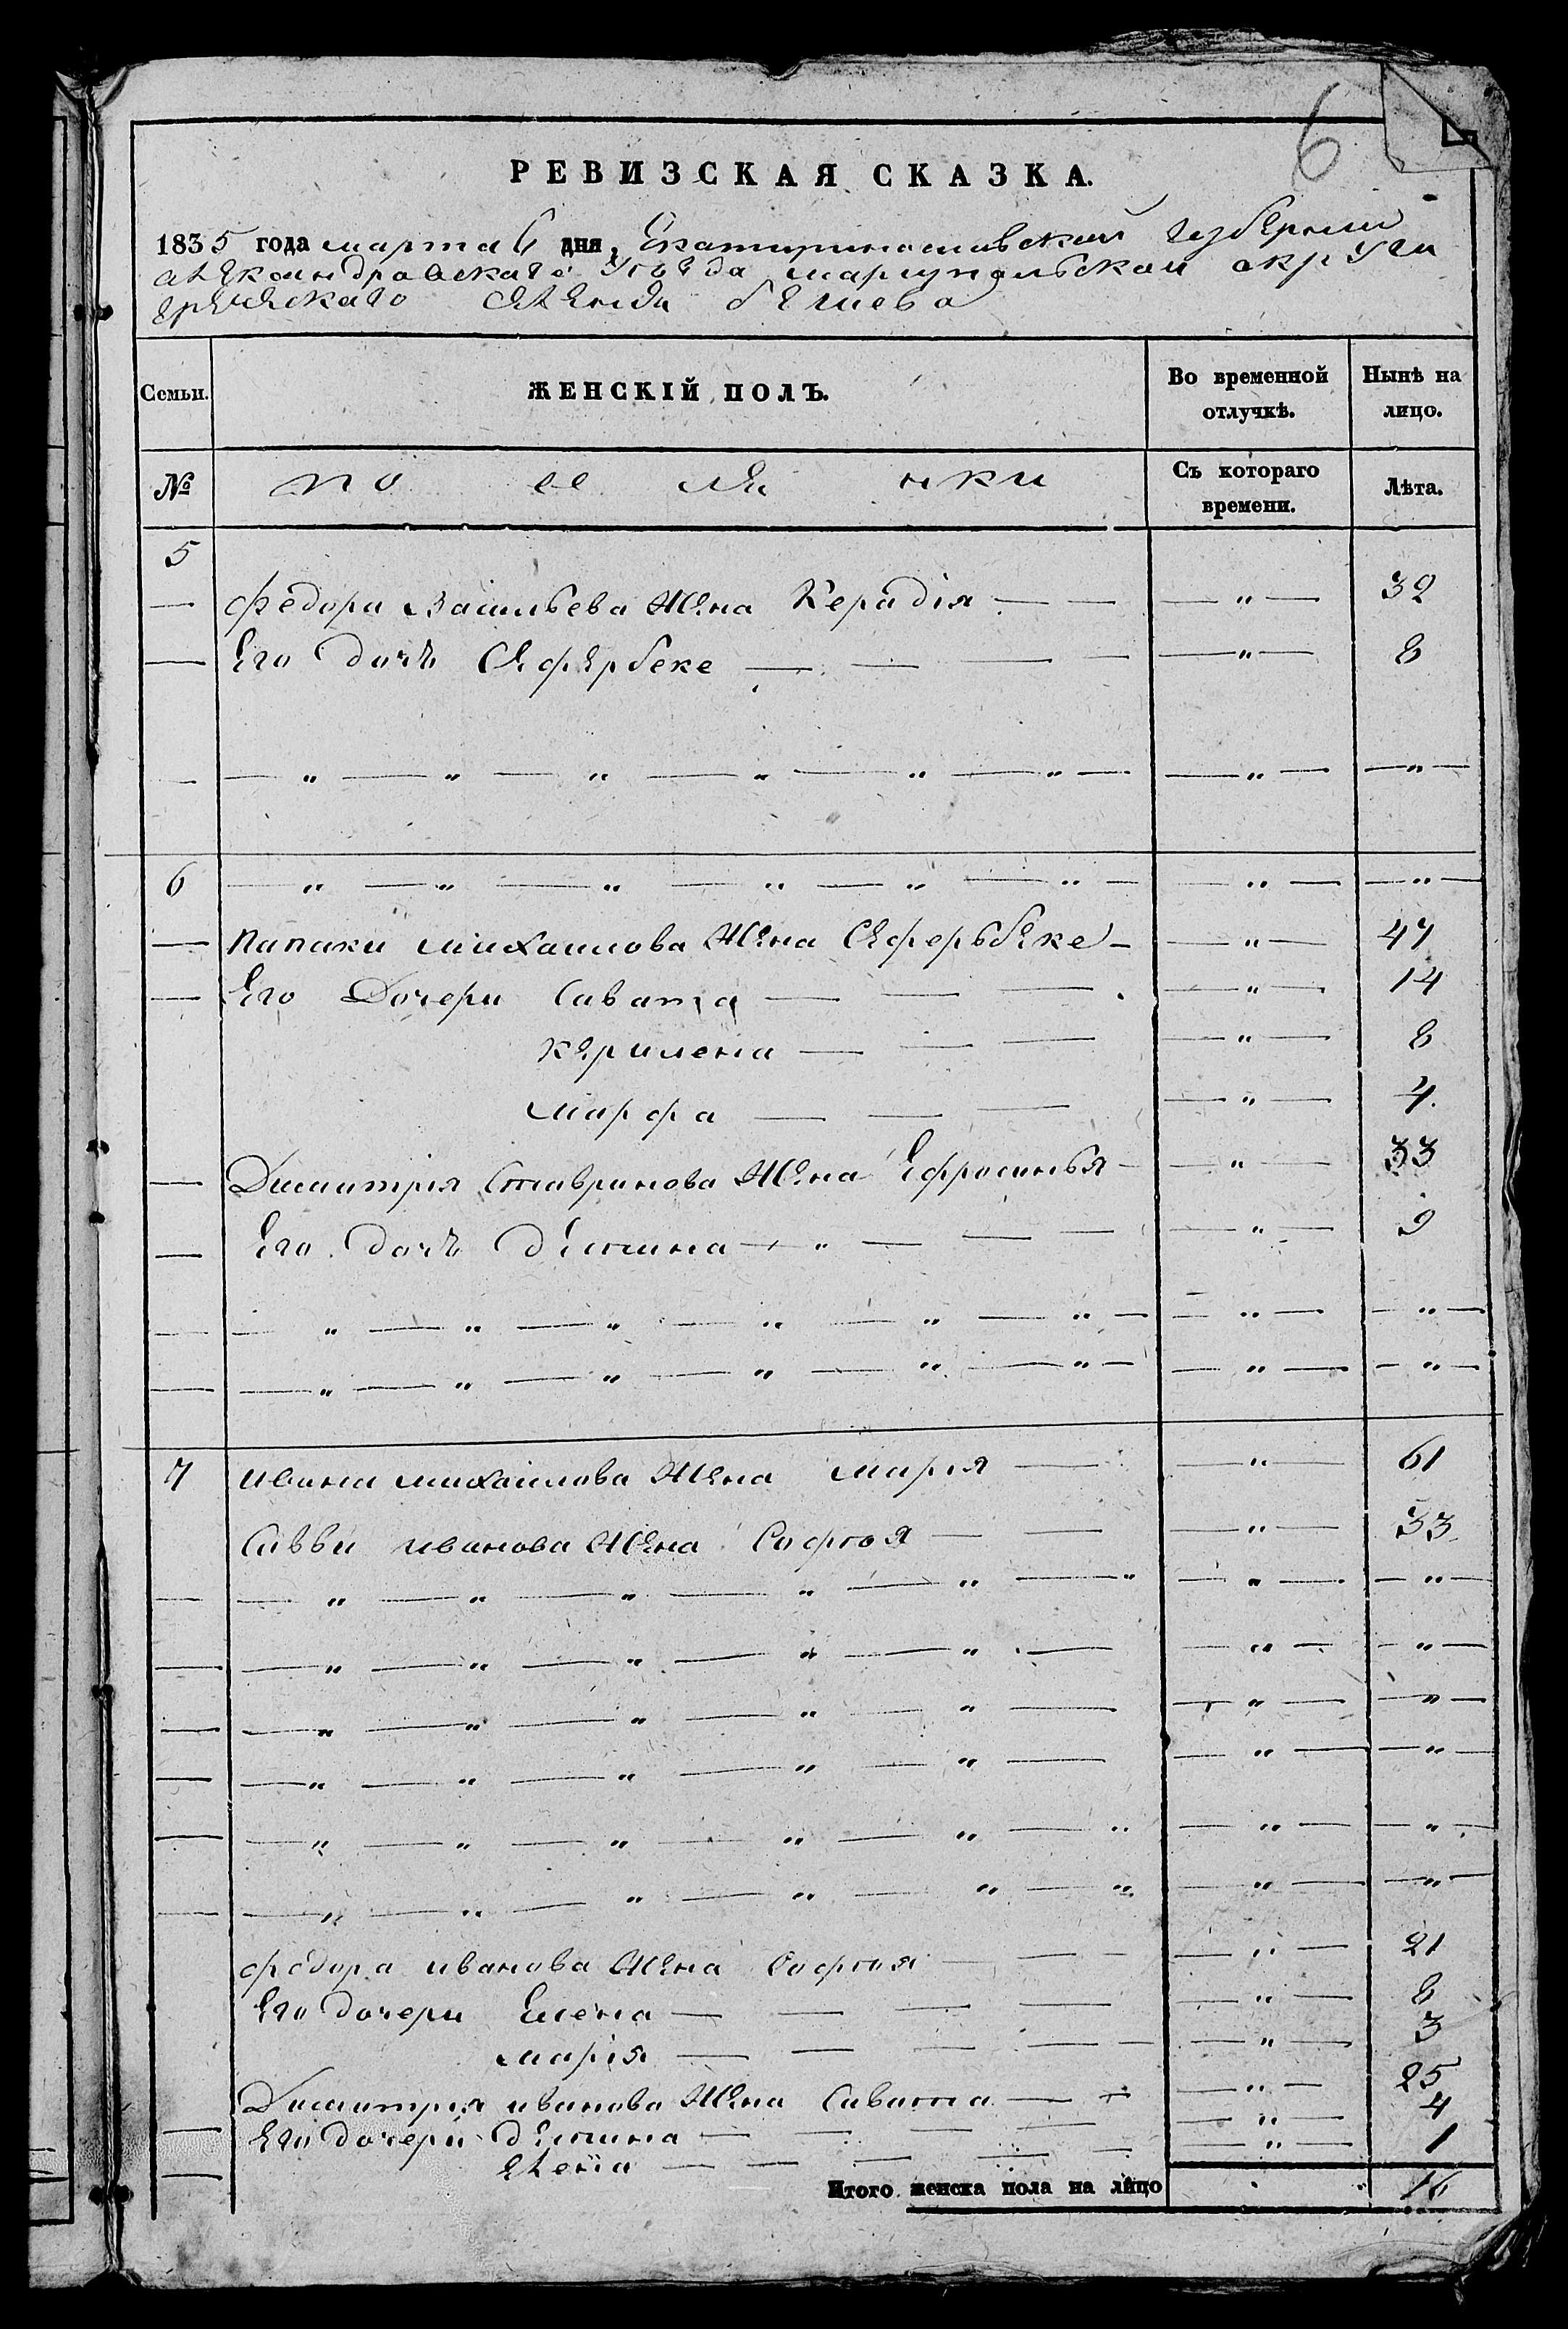 6
РЕВИЗСКАЯ СКАЗКА.
1835 года марта 6 дня, Екатеринославской губернии
александровскаго уезда мариупольскои округи
греческаго селения бешева
Семьи. ЖЕНСКІЙ ПОЛЪ. Во временной отлучкѣ. Нынѣ на лицо.
№ поселянки Съ котораго времени. Лѣта.
5
— федора Васильева Жена Керадія — — — " — 32
— Его дочь Сефербеке — — — — — " — 8
— — " — " — " — " — " — " — — " — — " —
6 — " — " — " — " — " — " — — " — — " —
— папаки михаилова Жена Сеферьбеке — — " — 47
— Его Дочери Савата — — — — " — 14
керилена — — — — " — 8
марфа — — — — " — 4.
— Димитрія Ставринова Жена Ефросинья — — " — 33
— Его дочь дешина — " — — — — " — 9
— — " — " — " — " — " — " — — " — — " —
— — " — " — " — " — " — " — — " — — " —
7 ивана михаилова Жена мария — — " — 61
Саввы иванова Жена София — — — " — 33
— — " — " — " — " — " — " — " — — " —
— — " — " — " — " — " — — " — — " —
— — " — " — " — " — " — — " — — " —
— — " — " — " — " — " — — " — — " —
— — " — " — " — " — " — " — " — — " —
— — " — " — " — " — " — " — " — — " —
федора иванова Жена София — — — — " — 21
Его дочери Елена — — — — — " — 8
марія — — — — — — " — 3
Димитрия иванова Жена Савата — — — " — 25
— Его дочери дешина — — — — — " — 4
— елена — — — — — — " — 1
Итого женска пола на лицо 16